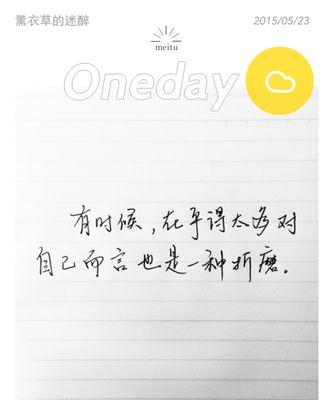 薰衣草的迷醉 2015/05/23
meitu
Oneday
有时候,在乎得太多对
自己而言也是一种折磨。